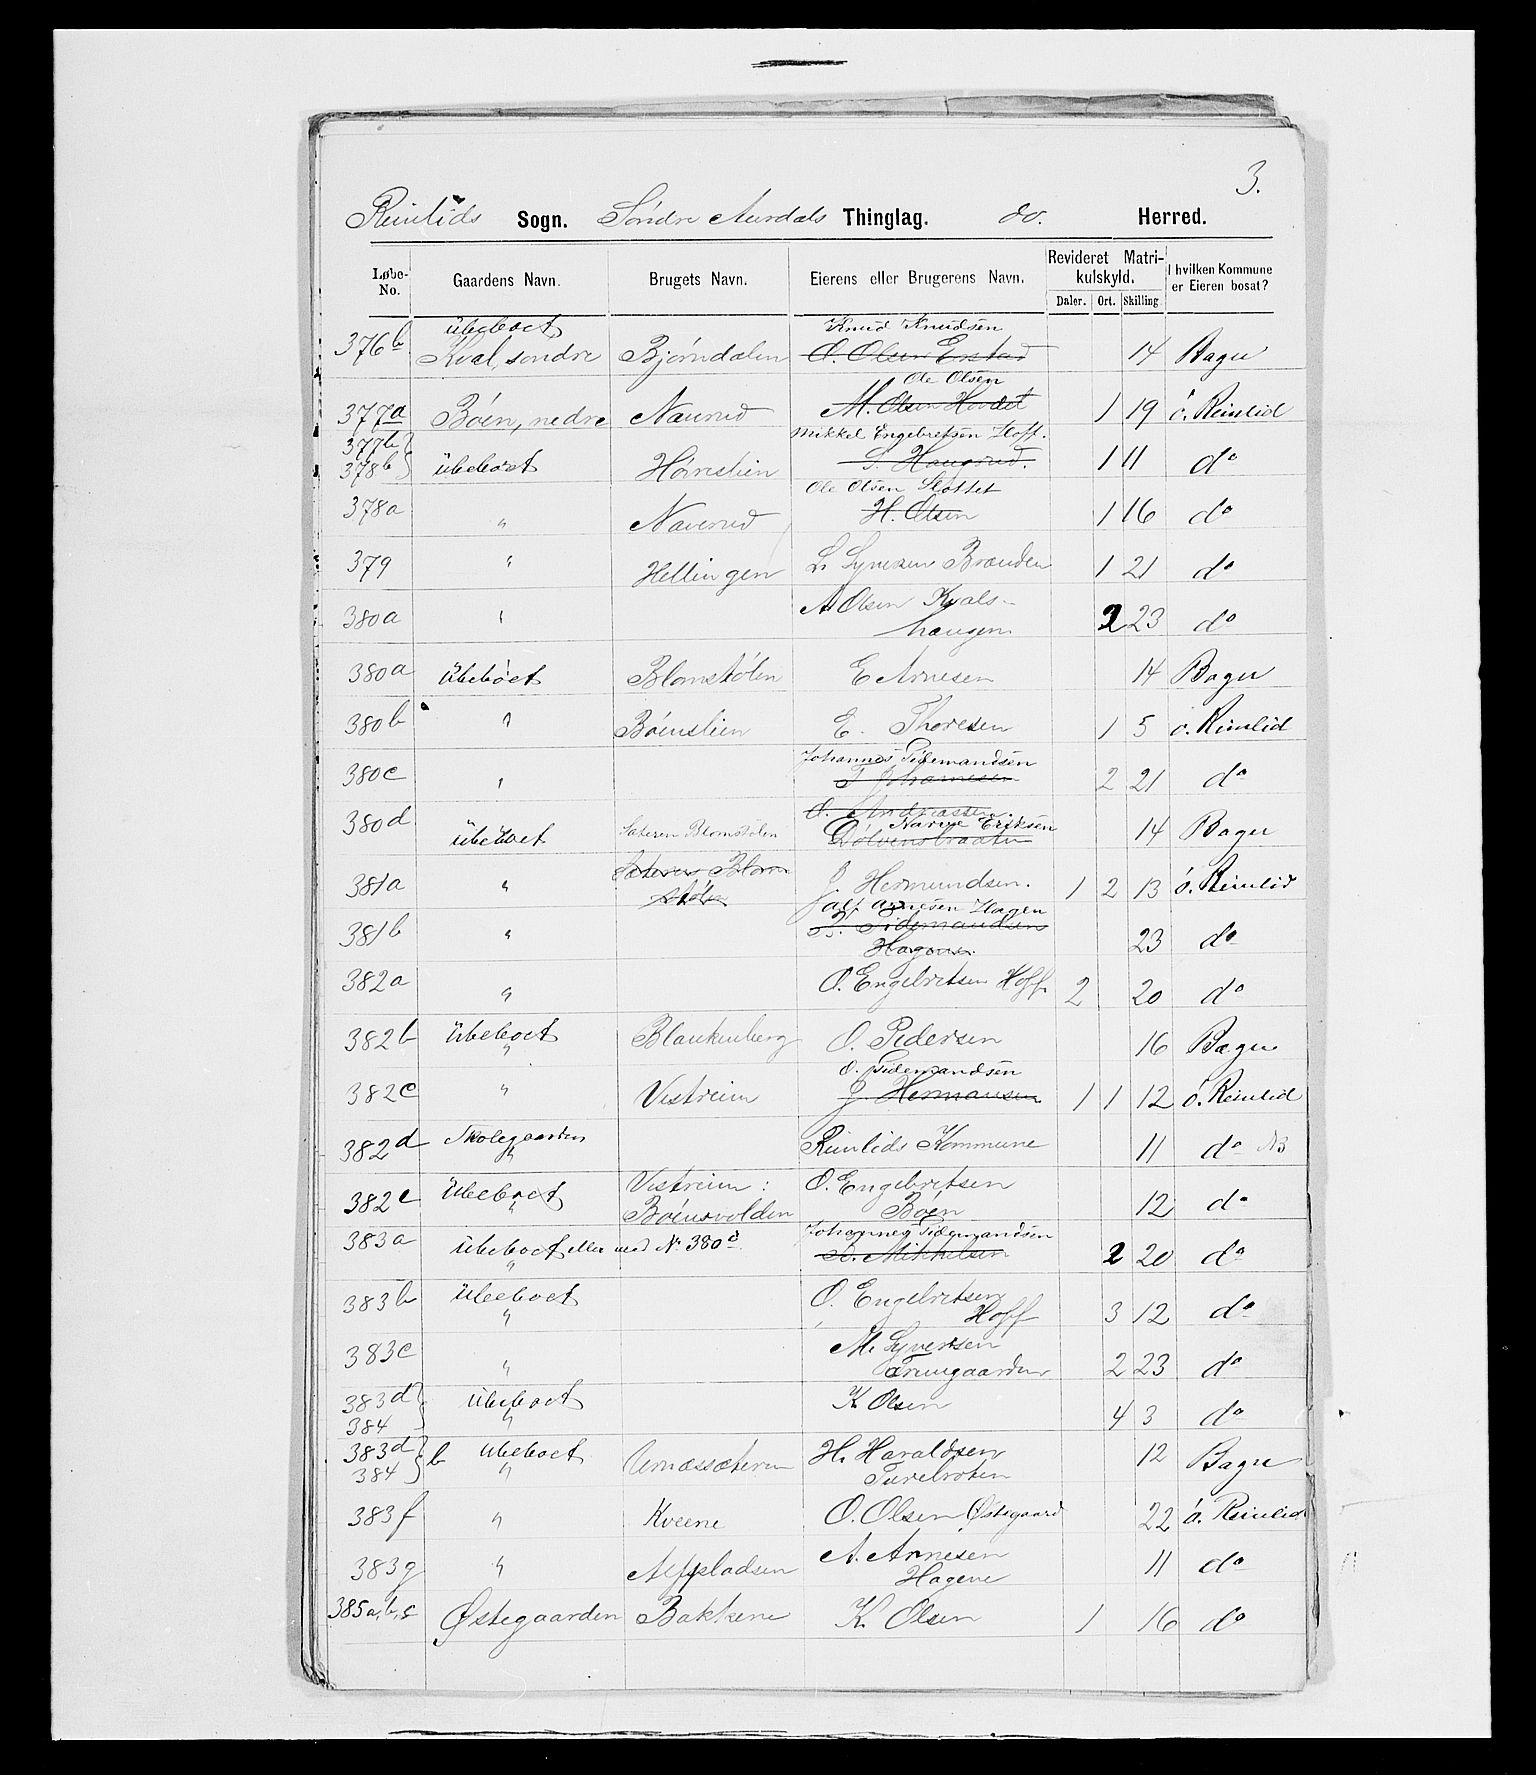 3.
Reinlids Sogn. Søndre Aurdals Thinglag. do. Herred.
Løbe-No. Gaardens Navn. Brugets Navn. Eierens eller Brugerens Navn. Revideret Matrikulskyld. Daler. Ort. Skilling I hvilken Kommune er Eieren bosat?
Ubeboet Knud Knudsen
376b Kval, søndre Bjørndalen O. Olsen Erstad 14 Bagn
Ole Olsen
377a Bøen, nedre Naverud M. Olsen Hovdet 1 19 ö. Reinlid
377b Mikkel Engebretsen Hoff.
378b Ubeboet Høvrelien S. Haugrud. 1 11 do
Ole Olsen Slottet
378a " Naverud H. Olsen 1 16 do
379 " Hellingen L. Syversen Branden 1 21 do
380a " A Olsen Kvals-
haugen 2 23 do
380a Ubebóet Blomstølen E Arnesen 14 Bagn
380b " Bøenslien E. Thoresen 1 5 ö. Reinlid
Johannes Tidemandsen
380c " T. Johannesen 2 21 do
O. Andreassen.
380d Ubeboet Sæteren Blomstølen Narve Eriksen 14 Bagn
Dølvensbraaten
381a " Sæteren Blomstølen J. Hermundsen. 1 2 13 ö. Reinlid
Alf Arnesen Hagen
381b " Tidemandsen 23 do
Hagene.
382a " O. Engebretsen Hoff. 2 20 do
382b Ubeboet Blankenberg O. Pedersen 16 Bagn
O. Tidemandsen
382c " Vestreim J. Hermansen 1 1 12 ö. Reinlid
382d Skolegaarden Reinlids Kommune 11 do NB
382e Ubeboet Vestreim: O. Engebretsen
Bøensvolden Bøen 12 do
Johannes Tidemandsen
383a Ubeboet eller med No 380c Mikkelsen 2 20 do
383b Ubeboet O. Engebretsen
" Hoff 3 12 do
383c " M. Syversen
2 23 do
383d Ubeboet K Olsen
384 " 4 3 do
383d b Ubeboet H. Haraldsen 12 Bagn
384 " Turebroten
383f " Kveene O. Olsen Østegaard 22 ö. Reinlid
383g " Alfpladsen A. Arnesen
Hagene 11 do
385a, b, c Østegaarden Bakkene K. Olsen 1 16 do